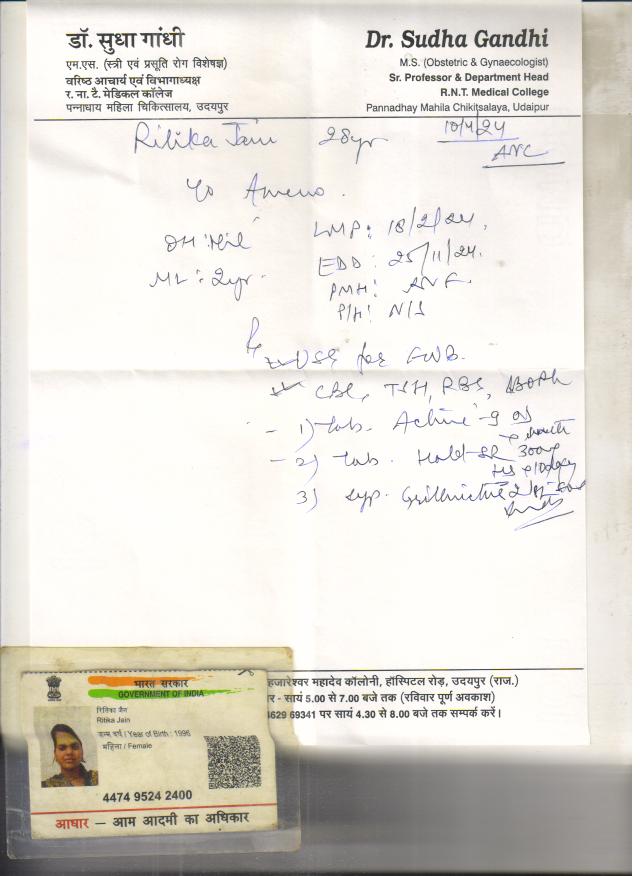 डॉ. सुधा गांधी
एम.एस. (स्त्री एवं प्रसूति रोग विशेषज्ञ)
वरिष्ठ आचार्य एवं विभागाध्यक्ष
र. ना. टै. मेडिकल कॉलेज
पन्नाधाय महिला चिकित्सालय, उदयपुर
Dr. Sudha Gandhi
M.S. (Obstetric & Gynaecologist)
Sr. Professor & Department Head
R.N.T. Medical College
Pannadhay Mahila Chikitsalaya, Udaipur
Ritika Jain 28yr 10/4/24
ANC
LMP: 18/2/24.
OH: Nil
EDD: 25/11/24.
ML: 2yr.
PMH:
P/H: N/S
USG for FWB.
CBC, TSH, RBS,
1) Tab.
2) Tab. Hold-SR 300mg
3) Syp.
हजारेश्वर महादेव कॉलोनी, हॉस्पिटल रोड़, उदयपुर (राज.)
र - सायं 5.00 से 7.00 बजे तक (रविवार पूर्ण अवकाश)
4629 69341 पर सायं 4.30 से 8.00 बजे तक सम्पर्क करें।
भारत सरकार
GOVERNMENT OF INDIA
रितिका जैन
Ritika Jain
जन्म वर्ष / Year of Birth : 1996
महिला / Female
4474 9524 2400
आधार – आम आदमी का अधिकार